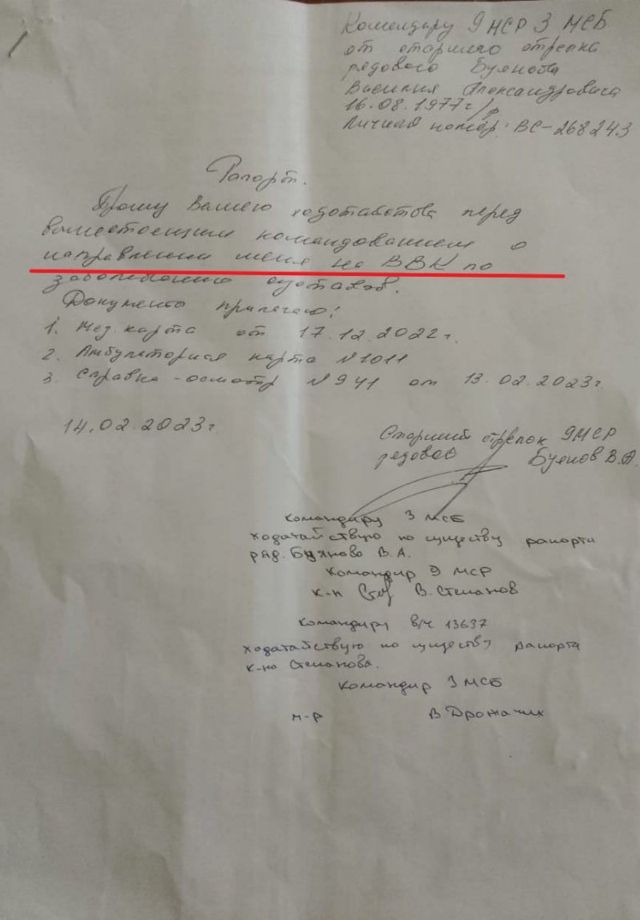 Командиру 9 МСР 3 МСБ
от старшего стрелка
рядового Буянова
Василия Александровича
16.08.1977г/р
Личный номер: ВС-268243
Рапорт.
Прошу Вашего ходотабства перед
вышестоящим командованием о
направлении меня на ВВК по
заболеванию суставов.
Документы прилагаю:
1. Мед. карта от 17.12.2022г.
2. Амбулаторная карта №1011
3. Справка-осмотр №941 от 13.02.2023г
14.02.2023г.
Старший стрелок 9МСР
рядовой Буянов В.А.
Командиру 3 МСБ
Ходатайствую по существу рапорта
ряд. Буянова В.А.
Командир 9 МСР
к-н В. Степанов
Командиру в/ч 13637
Ходатайствую по существу рапорта
к-на Степанова.
Командир 3 МСБ
м-р В Дрожачих